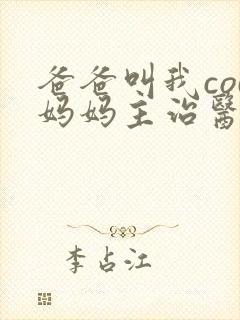 爸爸叫我co
妈妈主治醫
李占江